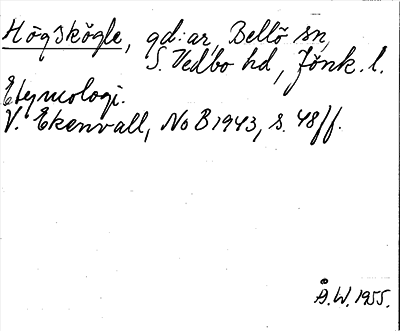 Högskögle, gd:ar, Bellö sn,
S. Vedbo hd, Jönk. l.
Etymologi.
V. Ekenvall, NoB 1943, s. 48 ff.
Å.W. 1955.